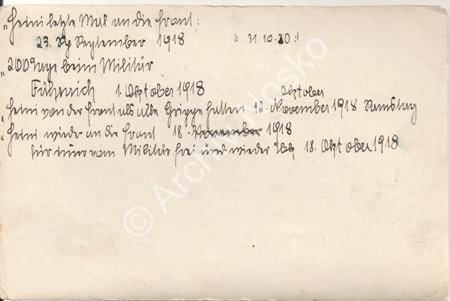 „Heini letzte Mal an die Front:
23. September 1918 „ 31.10.20:"
„200 Tage beim Militär
1. Oktober 1918
Oktober
„Heini von der Front als alle Grippe hatten 12. November 1918 Samstag
„Heini wieder an die Front 18. November 1918
für immer vom Militär frei und wieder 18. Oktober 1918
© Archiv